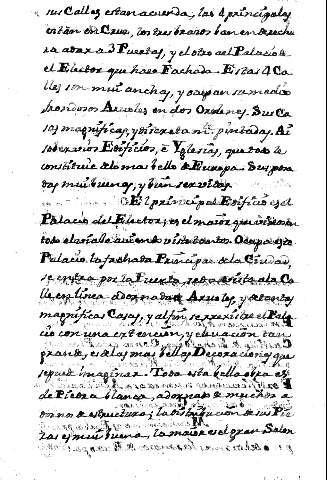 sus Calles estan acuerda, las 4 principales
estàn en Cruz, los tres braços ban en derechu
ra adar a 3 Puertas, y el otro al Palacio de
el Elector que hace Fachada. Estas 4 Ca
lles son mui anchas, y ocupan su medio
frondosos Arvoles en dos Ordenes. Sus Ca
sas magnificas, y discretam.te pintadas. Ai
sobervios Edificios, è Yglesias, que todo lo
constituie delo mas bello de Europa. Sus posa
das mui buenas, y bien servidas.
El principal Edificio es el
Palacio del Elector; es el maior que
todo el
Palacio la fachada Principal de la Ciudad,
se entra por la Puerta, se dà vista ala Ca
lle en linea adornada de Arvoles, y de tantas
magnificas Casas, y al fin, se ve este Pala
cio con una extencion, y elevacion tan
grande, es delas mas bellas Decoraciones que
se puede imaginar. Toda esta bella obra es
de Piedra blanca, adornada de muchos a
dornos de esculctura; la distribucion de sus Pie
zas es mui buena, la maior es el gran Salon